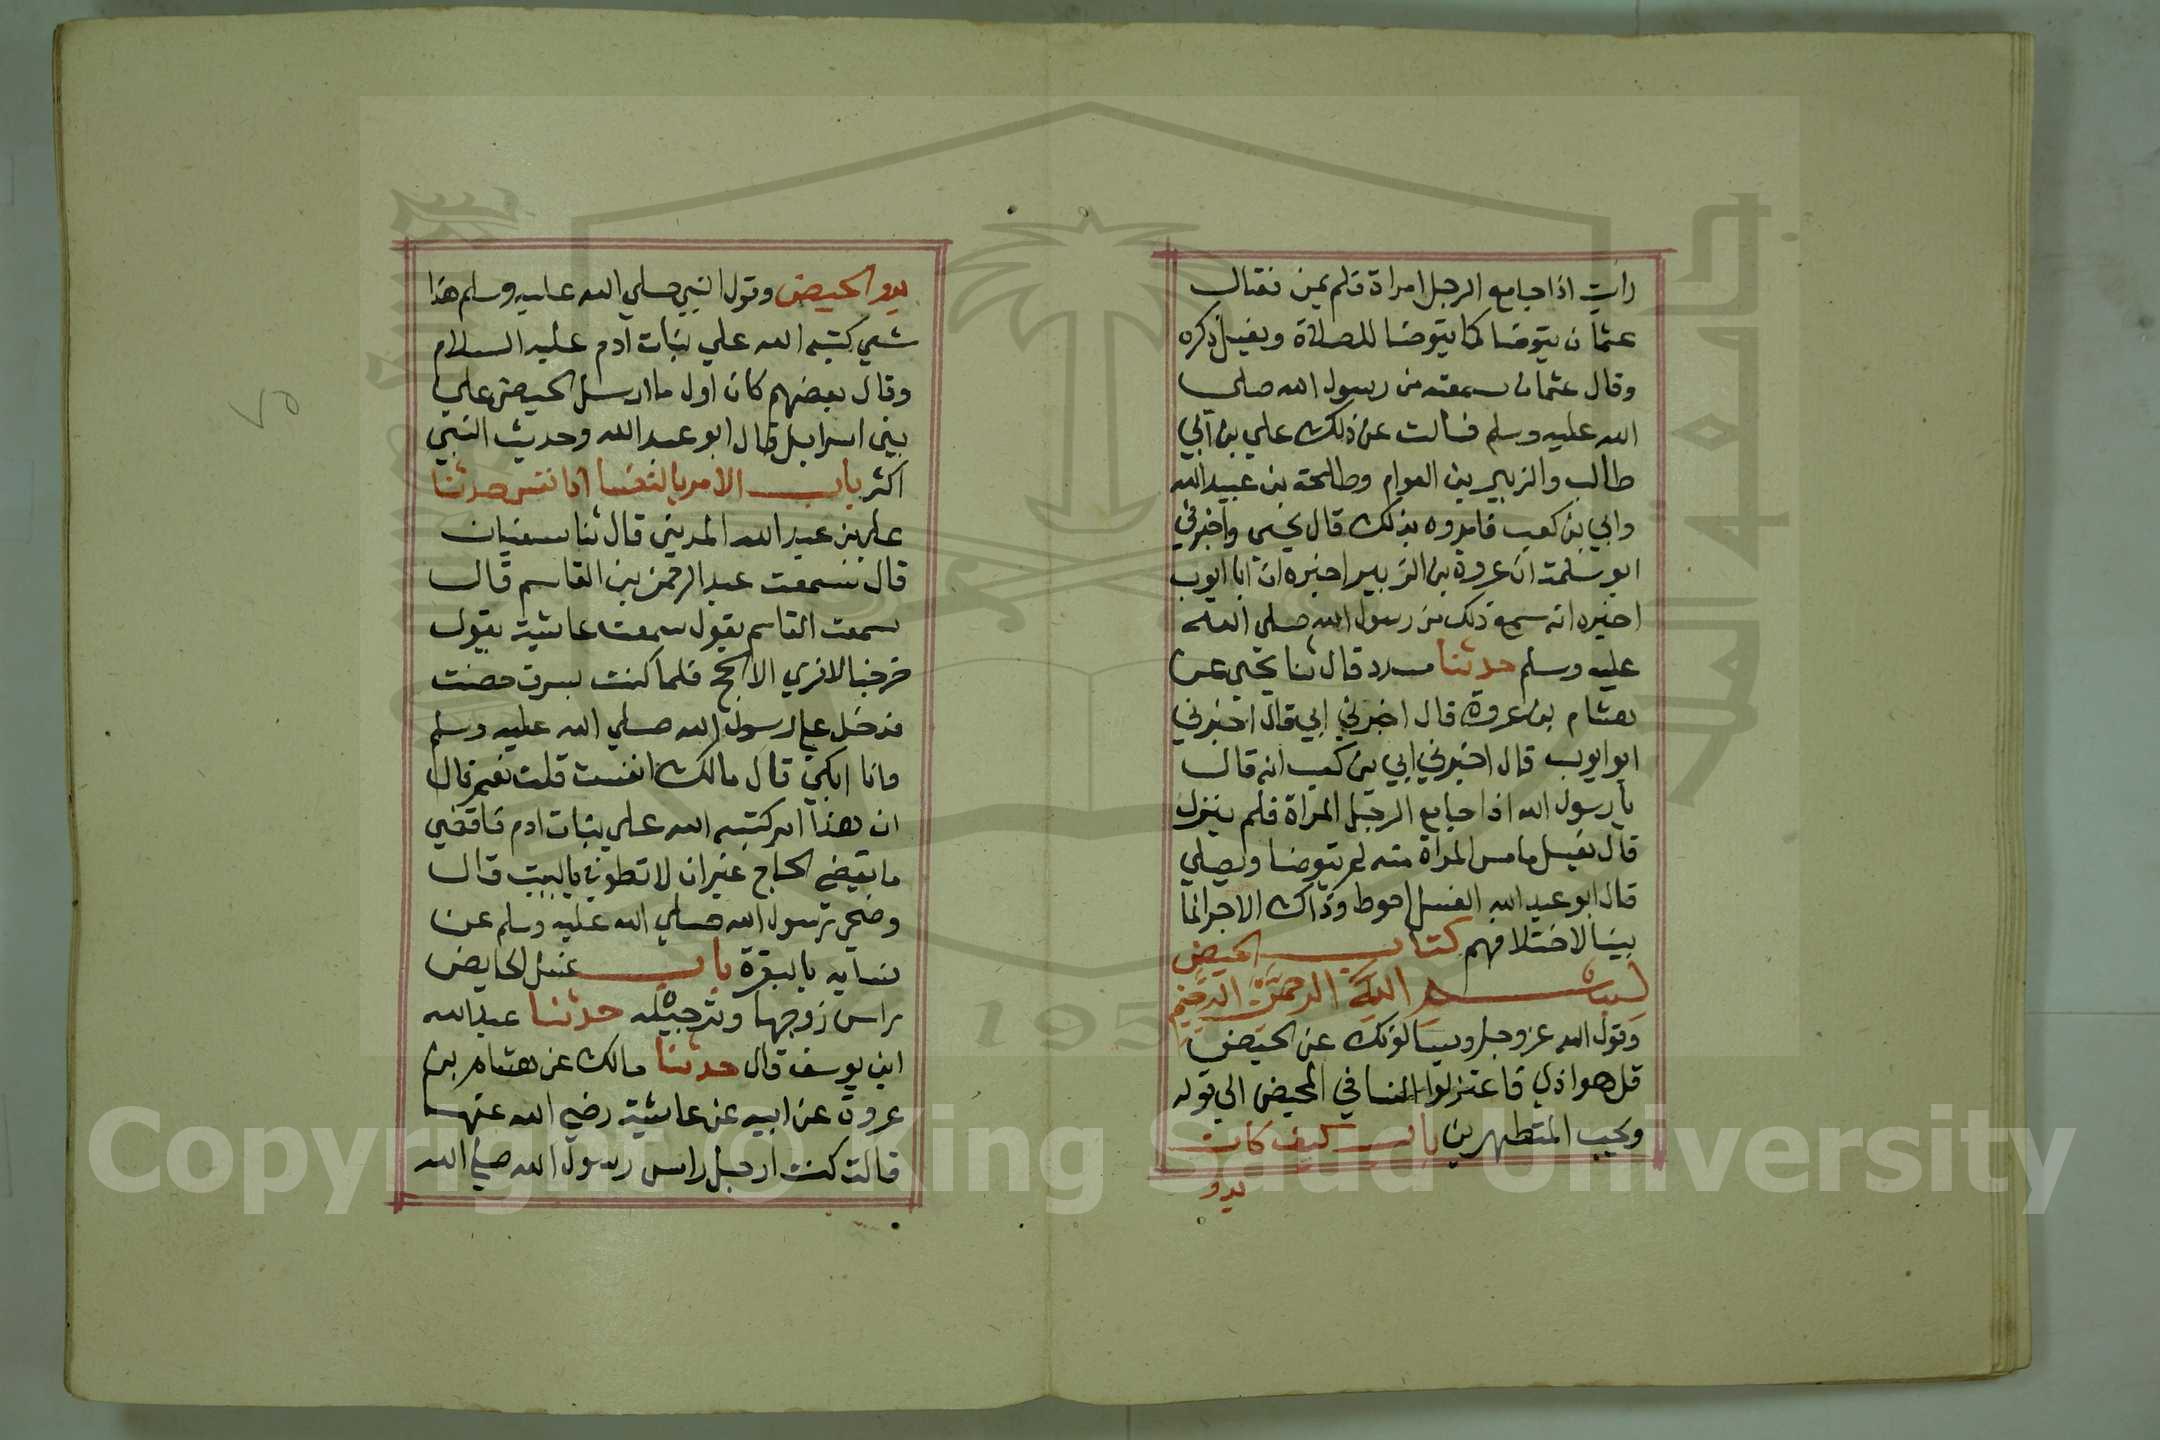 رايت اذا جامع الرجل امراة فلم يمن فقال
عثمان يتوضا كما يتوضا للصلاة ويغسل ذكره
وقال عثمان سمعته من رسول الله صلى
الله عليه وسلم فسالت عن ذلك علي بن ابي
طالب والزبير بن العوام وطلحة بن عبيد الله
وابي بن كعب فامروه بذلك قال يحيى واخبرني
ابو سلمة ان عروة بن الزبير اخبره ان ابا ايوب
اخبره انه سمع ذلك من رسول الله صلى الله
عليه وسلم حدثنا مسدد قال ثنا يحيى عن
هشام بن عروة قال اخبرني ابي قال اخبرني
ابو ايوب قال اخبرني ابي بن كعب انه قال
يا رسول الله اذا جامع الرجل المراة فلم ينزل
قال يغسل ما مس المراة منه ثم يتوضا ويصلي
قال ابو عبد الله الغسل احوط وذاك الاخر انما
بينا لاختلافهم كتاب الحيض
بسم الله الرحمن الرحيم
وقول الله عز وجل ويسالونك عن الحيض
قل هو اذي فاعتزلوا النسا في المحيض الي قوله
ويحب المتطهرين باب كيف كان
بدو
بدو الحيض وقول النبي صلي الله عليه وسلم هذا
شي كتبه الله علي بنات ادم عليه السلام
وقال بعضهم كان اول ما ارسل الحيض علي
بني اسرايل قال ابو عبد الله وحديث النبي
اكثر باب الامر بالنفسا اذا نفس حدثنا
علي بن عبد الله المديني قال ثنا سفيان
قال سمعت عبد الرحمن بن القاسم قال
سمعت القاسم يقول سمعت عايشة يقول
خرجنا لا نري الا الحج فلما كنت بسرف حضت
فدخل علي رسول الله صلي الله عليه وسلم
وانا ابكي قال مالك انفست قلت نعم قال
ان هذا امر كتبه الله علي بنات ادم فاقضي
ما يقضي الحاج غير ان لا تطوفي بالبيت قال
وضحى رسول الله صلي الله عليه وسلم عن
نسايه بالبقرة باب غسل الحايض
راس زوجها وترجيله حدثنا عبد الله
ابن يوسف قال حدثنا مالك عن هشام بن
عروة عن ابيه عن عايشة رضي الله عنها
قالت كنت ارجل راس رسول الله صلي الله
Copyright © King Saud University
195